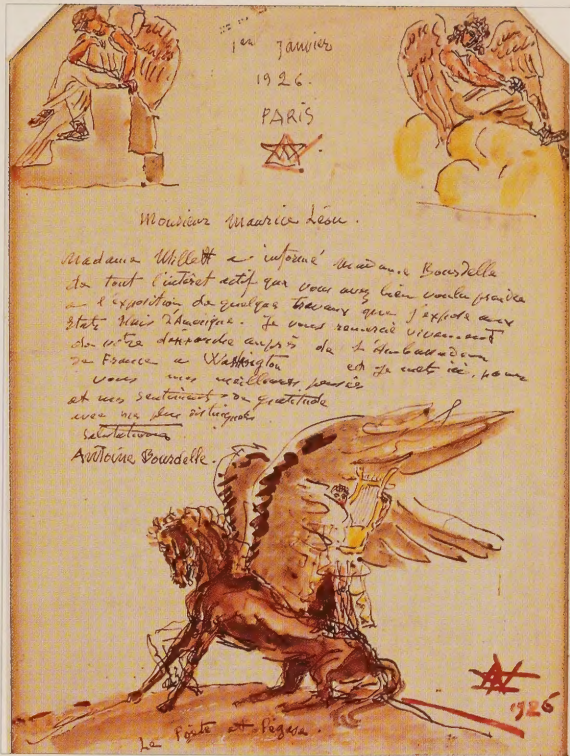 1er Janvier
1926.
PARIS
Monsieur Maurice Léon.
Madame Willett a informé Madame Bourdelle
de tout l'intérêt actif que vous avez bien voulu prendre
a l'exposition de quelque travaux que j'expose aux
Etats Unis d'Amérique. Je vous remercie vivement
de votre démarche auprès de l'Ambassadeur
de France a Washington et je mets ici, pour
vous mes meilleures pensées
et mes sentiments de gratitude
avec mes plus distinguées
Salutations
Antoine Bourdelle.
1926
Le Poète et Pégase.